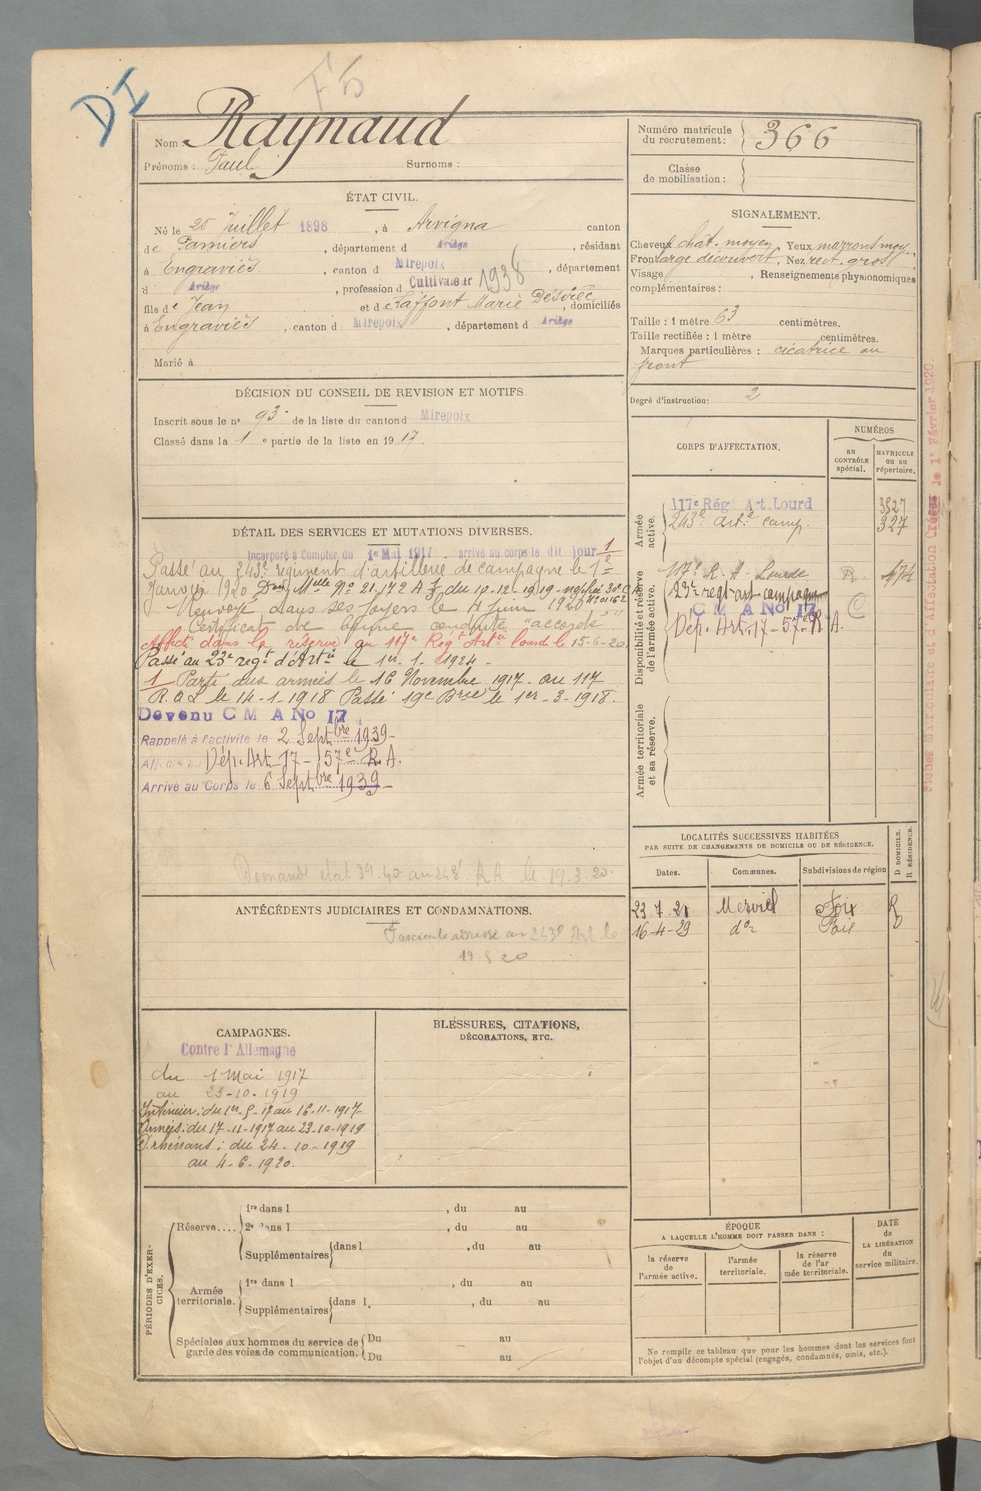 DI
F5
Nom Raynaud
Prénoms : Paul Surnoms :
Numéro matricule du recrutement : 366
Classe de mobilisation :
ÉTAT CIVIL.
Né le 20 Juillet 1898, à Arvigna canton
de Pamiers, département d Ariège, résidant
à Engraviès, canton d Mirepoix, département
d Ariège, profession d Cultivateur 1938
fils de Jean et de Laffont Marie Désirée, domiciliés
à Engraviès, canton d Mirepoix, département d Ariège
Marié à
SIGNALEMENT.
Cheveux chât. moyen, Yeux marrons moy.
Front large découvert, Nez rect. gros
Visage , Renseignements physionomiques
complémentaires :
Taille : 1 mètre 63 centimètres.
Taille rectifiée : 1 mètre centimètres.
Marques particulières : cicatrice au
front
Degré d'instruction : 2
DÉCISION DU CONSEIL DE REVISION ET MOTIFS
Inscrit sous le n° 93 de la liste du canton d Mirepoix
Classé dans la 1e partie de la liste en 1917.
CORPS D'AFFECTATION.
NUMÉROS
au CONTRÔLE spécial.
MATRICULE ou au répertoire.
Armée active.
117e Rég. Art. Lourd 3827
243e art. camp. 327
Disponibilité et réserve de l'armée active.
117e R. A. Lourde R. 474
23e regt art campagne
C M A No 17 C
Dép. Art. 17 - 57e R. A.
Armée territoriale et sa réserve.
Fiches Matriculaire et d'Affectation Créées le 1er Février 1920
DÉTAIL DES SERVICES ET MUTATIONS DIVERSES.
Incorporé à Compter du 1er Mai 1917 arrivé au corps le dit jour 1
Passé au 243e régiment d'artillerie de campagne le 1er
Janvier 1920 Don Mlle No 21.172 A du 10-12-1919
Renvoyé dans ses foyers le 4 Juin 1920
Certificat de bonne conduite "accordé"
Affecté dans la réserve au 117e Régt d'Artie lourde le 15-6-20
Passé au 23e régt d'Artie le 1er. 1. 1924 -
1 Parti aux armées le 16 Novembre 1917 au 117
R.A.L le 14-1-1918 Passé 19e Brie le 1er-3-1918.
Devenu C M A No 17
Rappelé à l'activité le 2 Septbre 1939 -
Affecté au Dép. Art 17 - 57e R. A.
Arrivé au Corps le 6 Septbre 1939 -
Demande état 39.40 au 243e RA le 19.3.20.
ANTÉCÉDENTS JUDICIAIRES ET CONDAMNATIONS.
Fascicule adressé au 243e RA le
19 5 20
LOCALITÉS SUCCESSIVES HABITÉES
PAR SUITE DE CHANGEMENTS DE DOMICILE OU DE RÉSIDENCE.
D DOMICILE. R RÉSIDENCE.
Dates. Communes. Subdivisions de région
23 7 21 Merviel Foix R
16-4-29 do Foix D
CAMPAGNES.
Contre l'Allemagne
du 1 Mai 1917
au 23-10-1919
Intérieur : du 1er-5-17 au 16-11-1917
Armées : du 17-11-1917 au 23-10-1919
P. rhénans : du 24-10-1919
au 4-6-1920.
BLESSURES, CITATIONS,
DÉCORATIONS, ETC.
PÉRIODES D'EXERCICES.
Réserve....
1re dans l , du au
2e dans l , du au
Supplémentaires dans l , du au
Armée territoriale.
1re dans l , du au
Supplémentaires dans l , du au
Spéciales aux hommes du service de garde des voies de communication.
Du au
Du au
ÉPOQUE
A LAQUELLE L'HOMME DOIT PASSER DANS :
la réserve de l'armée active.
l'armée territoriale.
la réserve de l'armée territoriale.
DATE de LA LIBÉRATION du service militaire.
Ne remplir ce tableau que pour les hommes dont les services font
l'objet d'un décompte spécial (engagés, condamnés, omis, etc.).